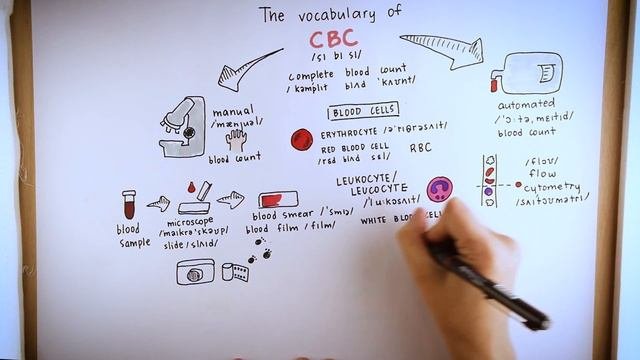 The vocabulary of
CBC
/sɪ bɪ sɪ/
complete blood count
/kəmplit blʌd kaʊnt/
manual
/mænjʊəl/
blood count
automated
/ˈɔːtəˌmeɪtɪd/
blood count
BLOOD CELLS
ERYTHROCYTE /əˈrɪθrəsaɪt/
RED BLOOD CELL RBC
/rɛd blʌd sɛl/
LEUKOCYTE/
LEUCOCYTE
/ˈluːkəsaɪt/
WHITE BLOOD CELL
/floʊ/
flow
cytometry
/saɪtɒmətri/
blood
sample
microscope
/maɪkrəˈskəʊp/
slide /slaɪd/
blood smear /ˈsmɪə/
blood film /fɪlm/